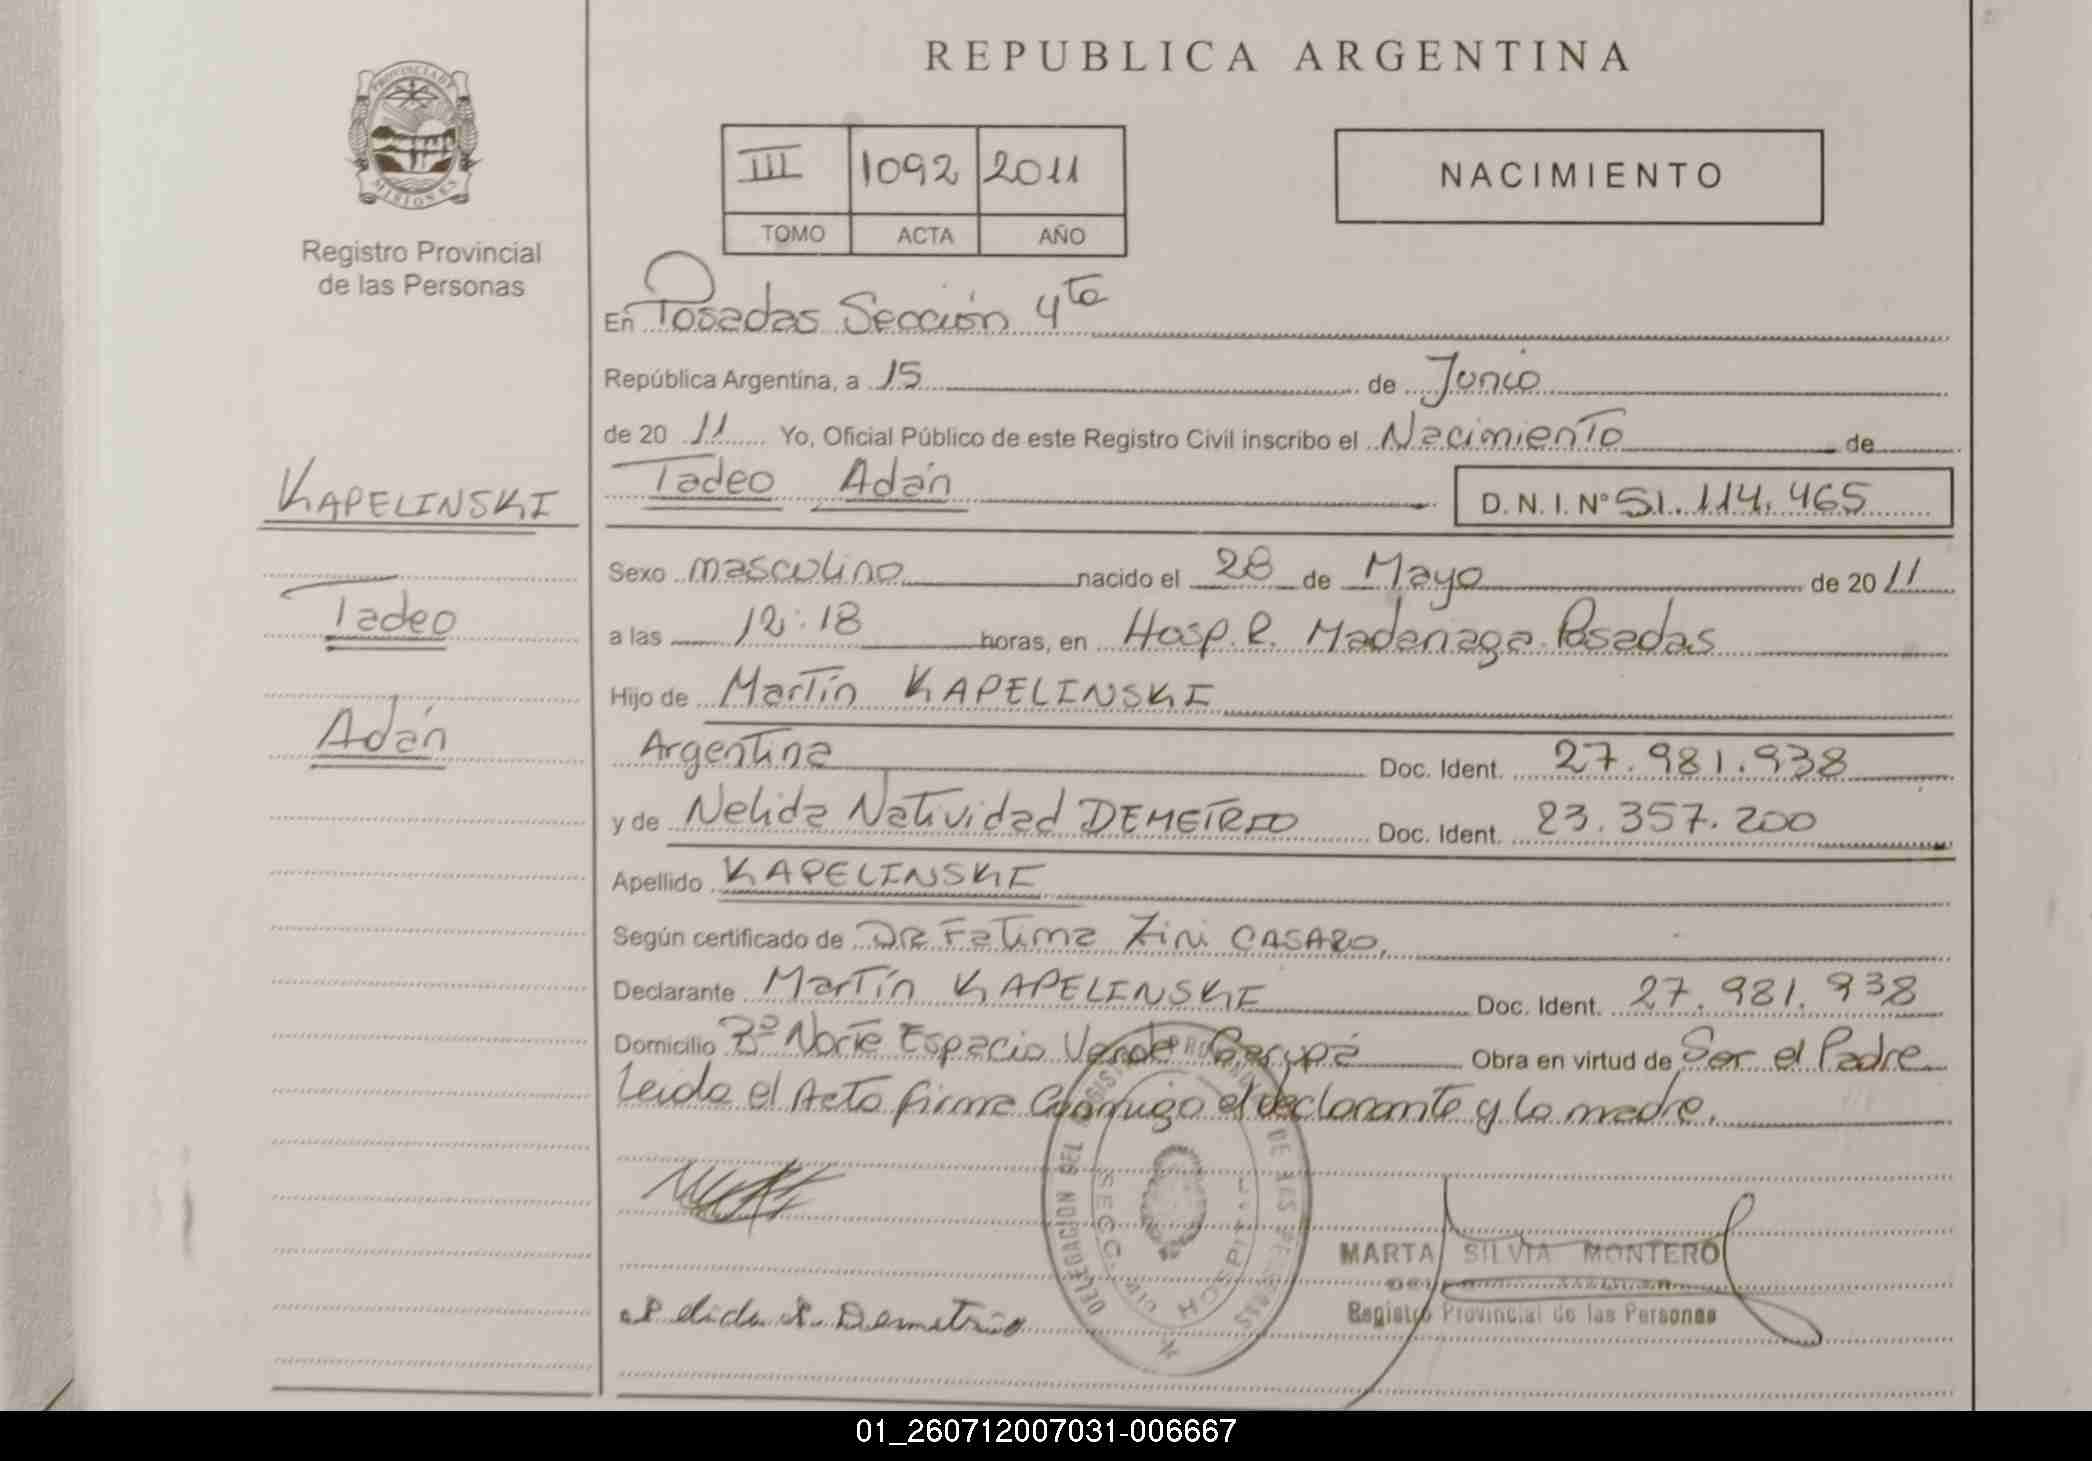 REPUBLICA ARGENTINA
PROVINCIA DE
MISIONES
Registro Provincial
de las Personas
III 1092 2011
TOMO ACTA AÑO
NACIMIENTO
En Posadas Sección 4ta
República Argentina, a 15 de Junio
de 20 11 Yo, Oficial Público de este Registro Civil inscribo el Nacimiento de
KAPELINSKI
Tadeo Adán D. N. I. Nº 51.114.465
Sexo masculino nacido el 28 de Mayo de 20 11
Tadeo
a las 12:18 horas, en Hosp. R. Madariaga Posadas
Hijo de Martín KAPELINSKI
Adán
Argentina Doc. Ident. 27.981.938
y de Nelida Natividad DEMETRIO Doc. Ident. 23.357.200
Apellido KAPELINSKI
Según certificado de DR Fatima Zini CASARO.
Declarante Martín KAPELINSKI Doc. Ident. 27.981.938
Domicilio Bº Norte Espacio Verde Garupá Obra en virtud de Ser el Padre
Leida el Acta firma Conmigo el declarante y la madre.
DELEGACION DEL REGISTRO PROVINCIAL DE LAS PERSONAS
SECC. HOSPITAL
MARTA SILVIA MONTERO
Registro Provincial de las Personas
Demetrio
01_260712007031-006667